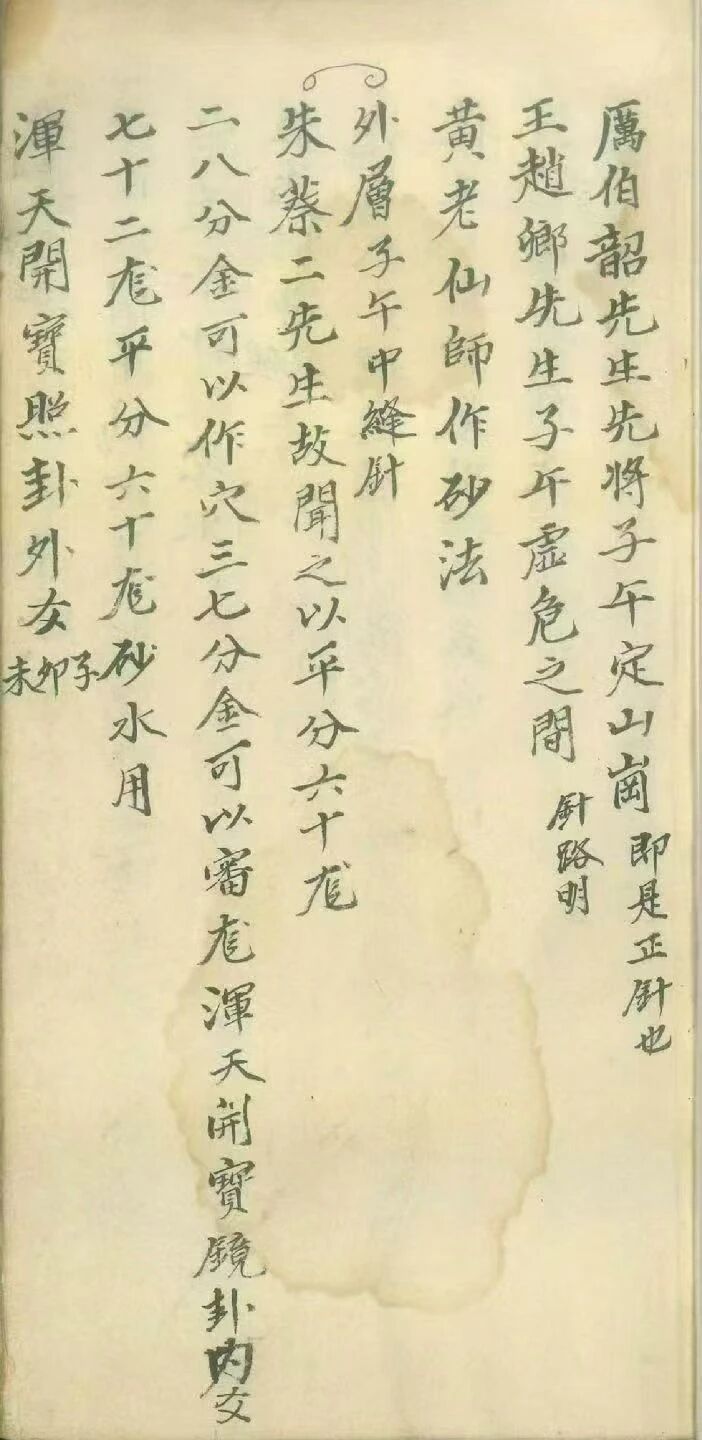 厲伯韶先生先將子午定山崗 即是正針也
王趙鄉先生子午虛危之間 針路明
黃老仙師作砂法
外層子午中縫針
朱蔡二先生故聞之以平分六十尨
二八分金可以作穴三七分金可以審尨渾天開寶鏡卦内爻
七十二尨平分六十尨砂水用
渾天開寶照卦外爻 子卯未